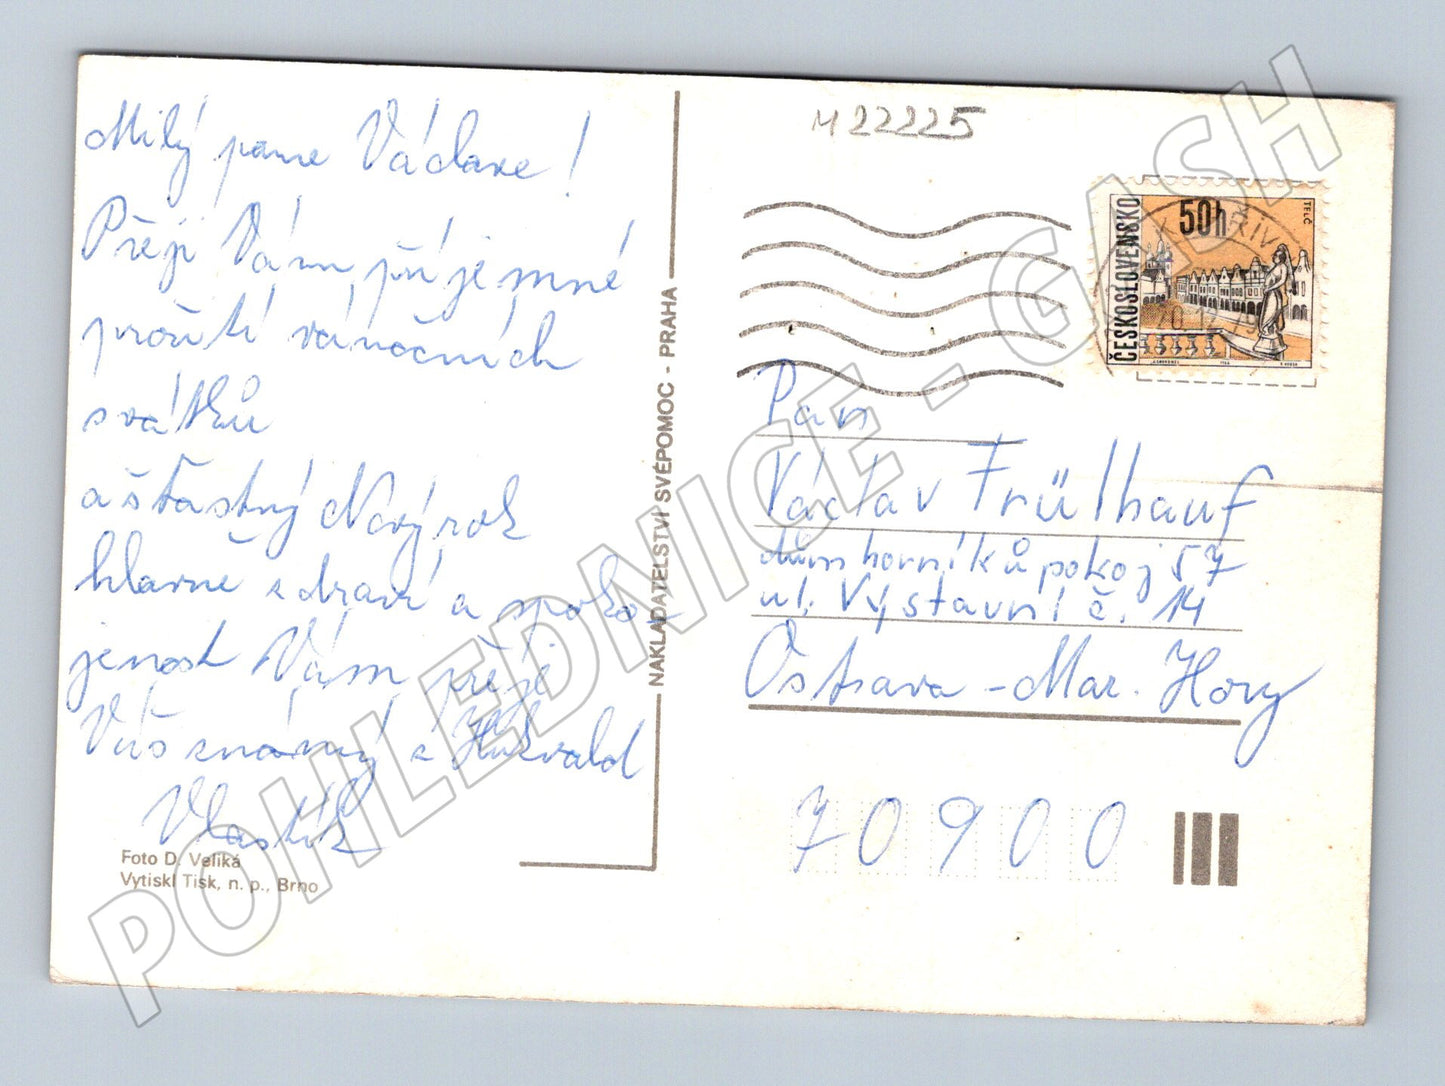 Milý pane Václave!
Přeji Vám příjemné
prožití vánočních
svátků
a šťastný Nový rok
hlavně zdraví a spoko-
jenost Vám přeje
Váš známý z Hukvald
Vlastík
Foto D. Veliká
Vytiskl Tisk, n. p., Brno
NAKLADATELSTVÍ SVÉPOMOC - PRAHA
M 22225
ČESKOSLOVENSKO
50h
TELČ
Pan
Václav Frülhauf
dům horníků pokoj 57
ul. Výstavní č. 14
Ostrava - Mar. Hory
70900
POHLEDNICE - GASH